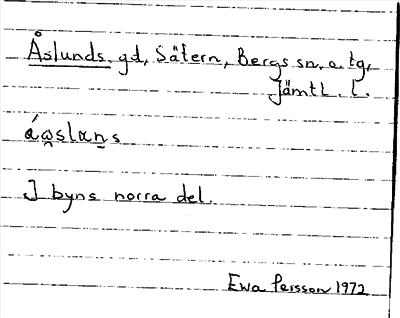 Åslunds gd, Sätern, Bergs sn. o. tg,
Jämtl. l.
I byns norra del.
Ewa Persson 1972